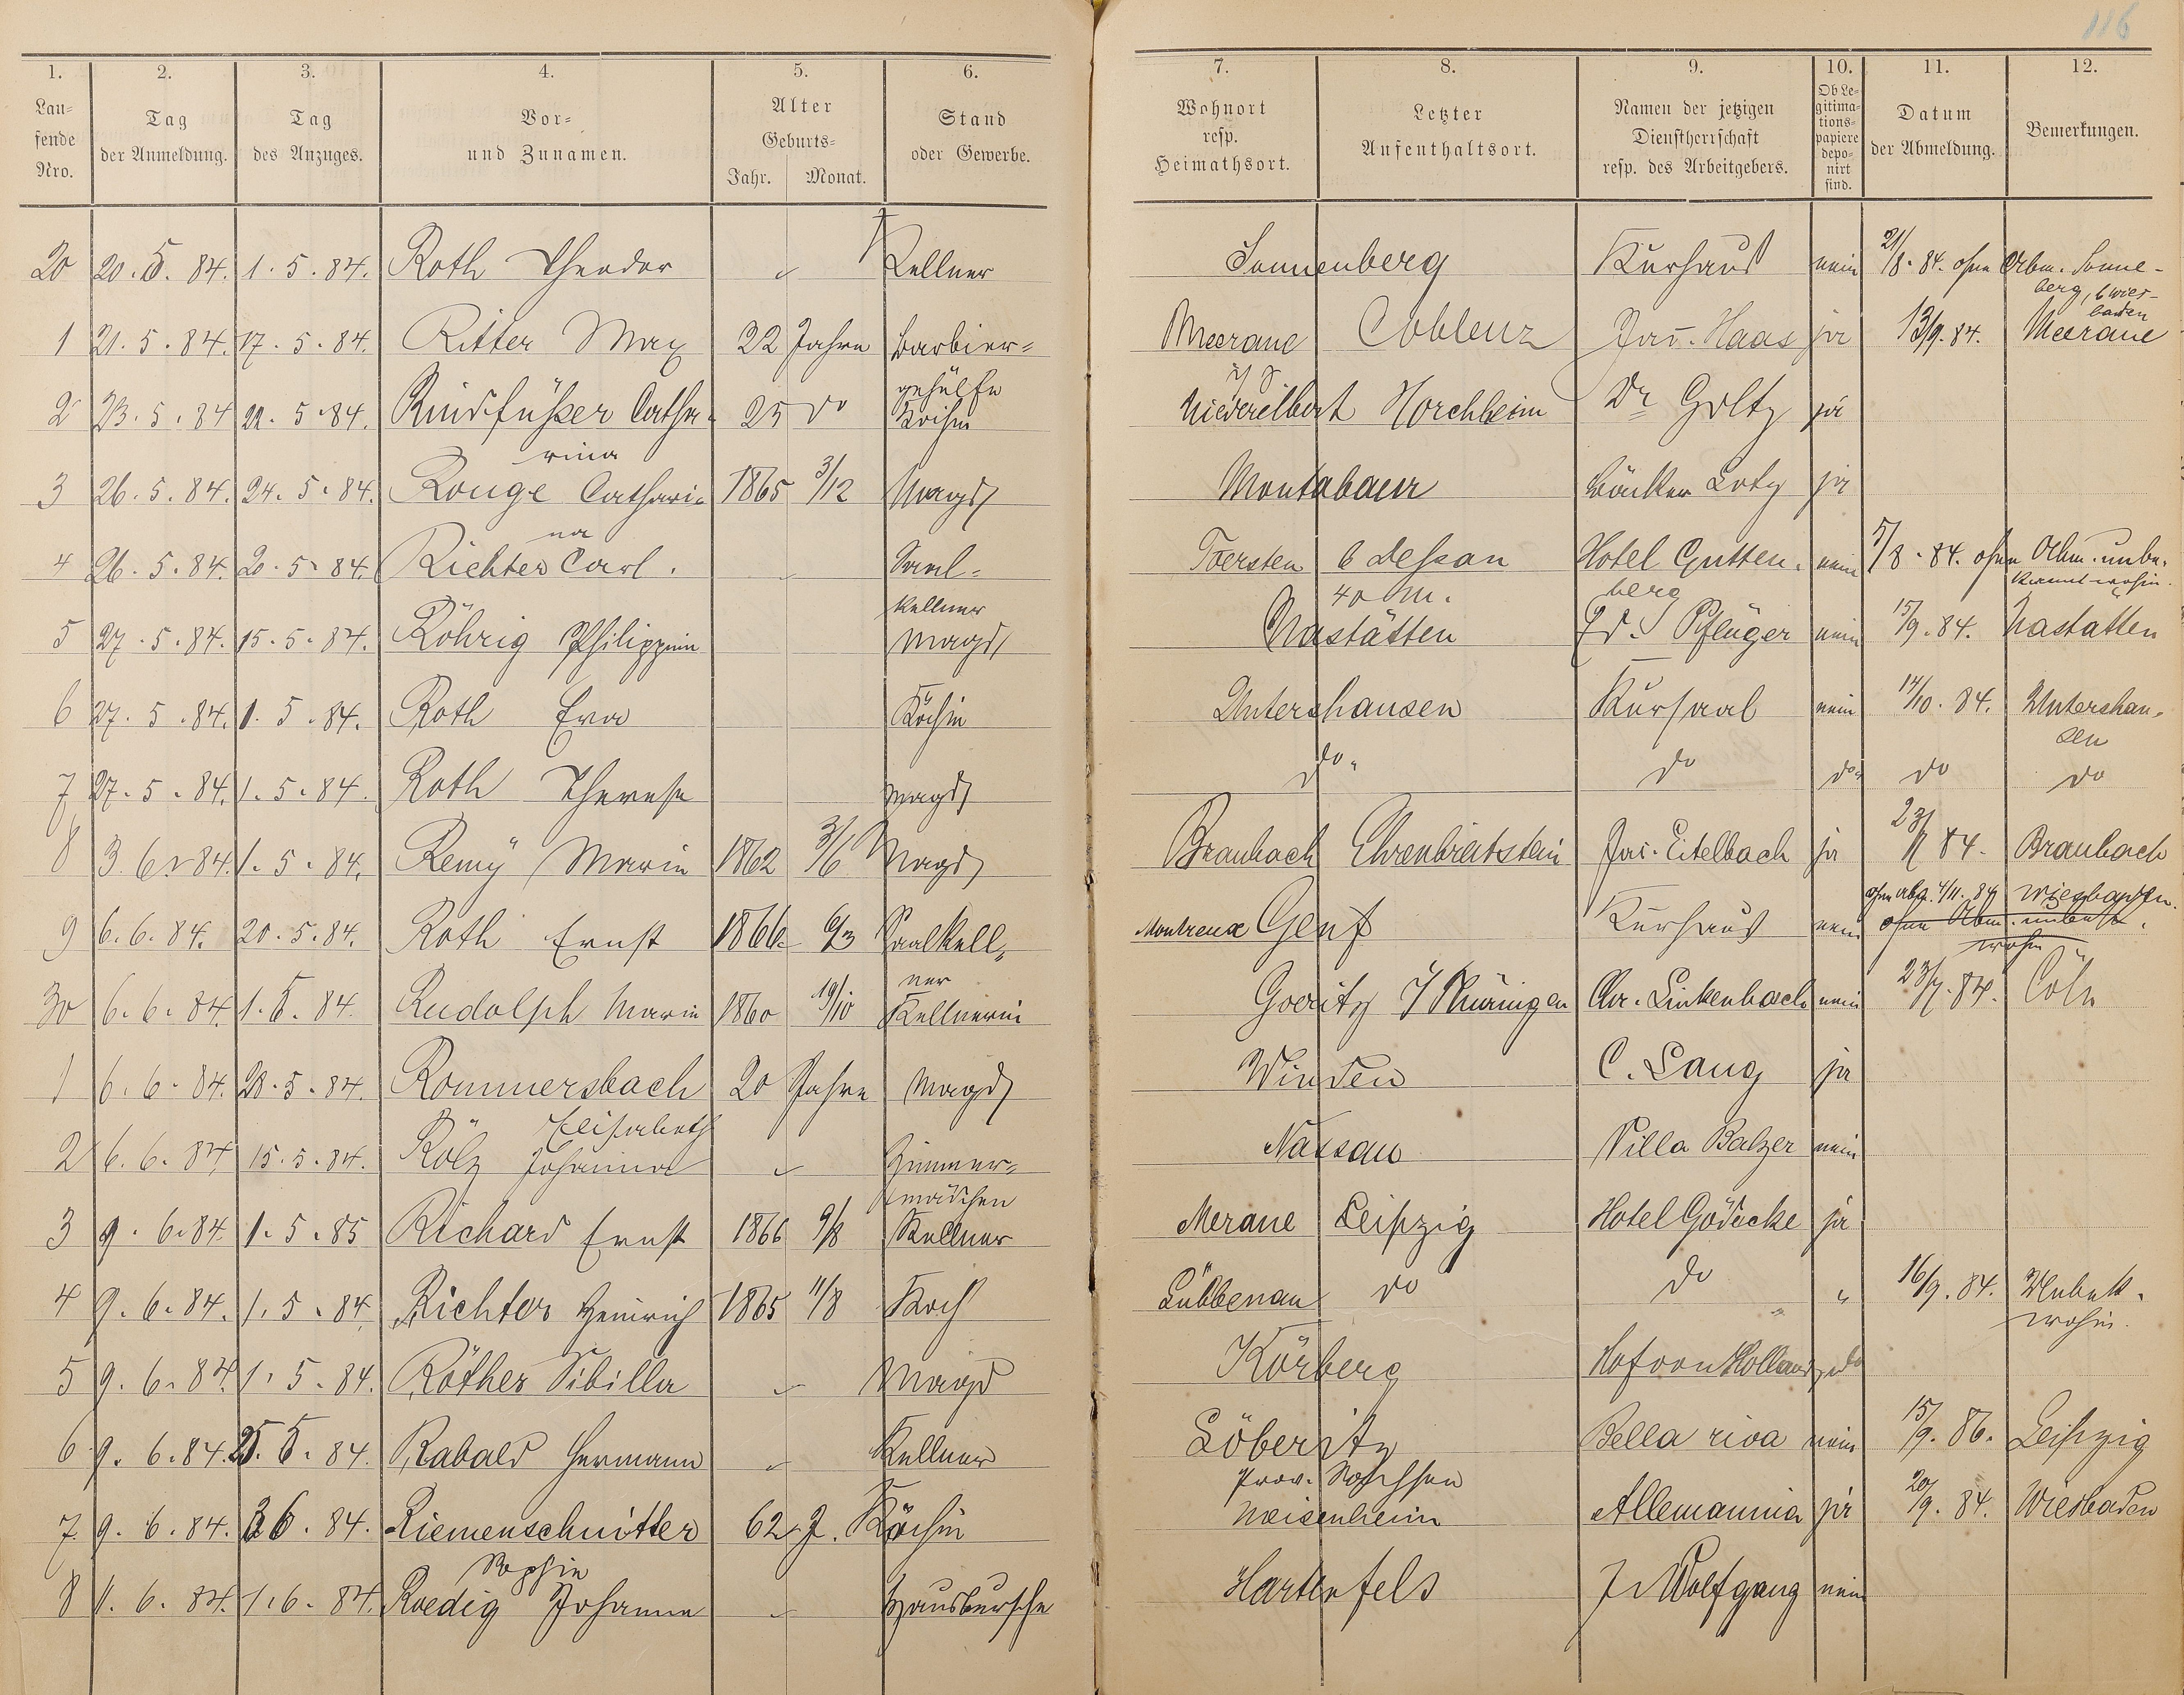 116
1. 2. 3. 4. 5. 6. 7. 8. 9. 10. 11. 12.
Lau=
fende
Nro.
Tag
der Anmeldung.
Tag
des Anzuges.
Vor=
und Zunamen.
Alter
Geburts=
Jahr. Monat.
Stand
oder Gewerbe.
Wohnort
resp.
Heimathsort.
Letzter
Aufenthaltsort.
Namen der jetzigen
Dienstherrschaft
resp. des Arbeitgebers.
Ob Le=
gitima=
tions=
papiere
depo=
nirt
sind.
Datum
der Abmeldung.
Bemerkungen.
20 20. 5. 84. 1. 5. 84. Roth Theodor Kellner Sonnenberg Kurhaus nein 21/8. 84. ohne Abm. Sonne-
berg, b Wies-
baden
1 21. 5. 84. 17. 5. 84. Ritter Max 22 Jahre Barbier= Meerane Coblenz Jac. Haas ja 13/9. 84. Meerane
gehülfe
2 23. 5. 84 22. 5. 84. Rindfüßer Catha- 25 do Köchin Niederelbert Horchheim Dr Goltz ja
rina
3 26. 5. 84. 24. 5. 84. Rouge Cathari= 1865 3/12 Magd Montabaur Bäcker Lotz ja
na
4 26. 5. 84. 20. 5. 84. Richter Carl. Saal= Toersten b Dessau Hotel Gutten. nein 5/8. 84. ohne Abm. unbe.
kellner berg kannt wohin.
5 27. 5. 84. 15. 5. 84. Röhrig Philippin Magd Nastätten Ed. Pflüger nein 15/9. 84. Nastätten
6 27. 5. 84. 1. 5. 84. Roth Eva Köchin Untershausen Kursaal nein 14/10. 84. Untershau-
sen
7 27. 5. 84. 1. 5. 84. Roth Therese Magd do. do do do do
8 3. 6. 84. 1. 5. 84. Remÿ Marie 1862 3/6 Magd Braubach Ehrenbreitstein Jac. Eitelbach ja 84. Braubach
ohne Abg. 4/11. 84 Wiesbaden.
9 6. 6. 84. 20. 5. 84. Roth Ernst 1866. 6/3 Saalkell= Montreux Genf Kurhaus nein ohne Abm. unbekt.
ner wohin
30 6. 6. 84. 1. 5. 84. Rudolph Marie 1860 19/10 Kellnerin Goeritz Thüringen Chr. Linkenbach nein 23/7. 84. Cöln
1 6. 6. 84. 28. 5. 84. Rommersbach 20 Jahre Magd Winden C. Lang ja
Elisabeth
2 6. 6. 84 15. 5. 84. Rölz Johanna Zimmer= Nassau Villa Balzer nein
mädchen
3 9. 6. 84. 1. 5. 85 Richard Ernst 1866 9/8 Kellner Merane Leipzig Hotel Gödecke ja
4 9. 6. 84. 1. 5. 84 Richter Heinrich 1865 11/8 Koch Lübbenau do do " 16/9. 84. Unbekt.
wohin.
5 9. 6. 84. 1. 5. 84. Röther Sibilla Magd Körberg Hof von Holland do
6 9. 6. 84. 25. 5. 84. Rabald Hermann Kellner Löberitz Bella riva nein 15/9. 86. Leipzig
Prov. Sachsen
7. 9. 6. 84. 3 6. 84. Riemenschnitter 62 J. Köchin Meisenheim Allemannia ja 20/9. 84. Wiesbaden
Sophie
8 11. 6. 84. 1. 6. 84. Roedig Johann Hausbursche Hartenfels J. Wolfgang nein